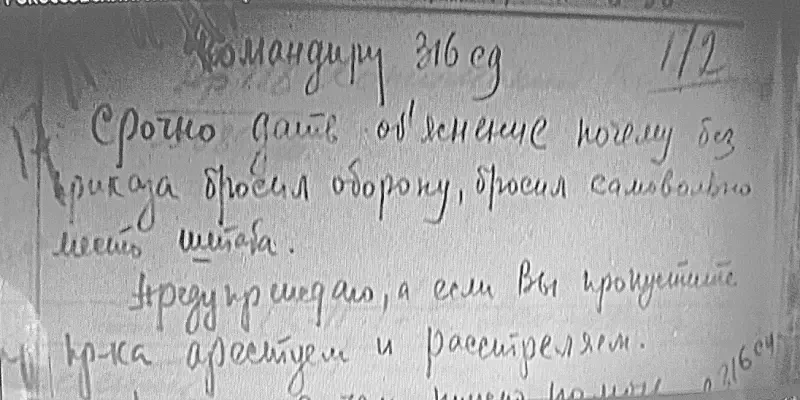 Командиру 316 сд 1/2
Срочно дать об'яснение почему без
приказа бросил оборону, бросил самовольно
место штаба.
Предупреждаю, а если Вы пропустите
пр-ка арестуем и расстреляем.
316 сд